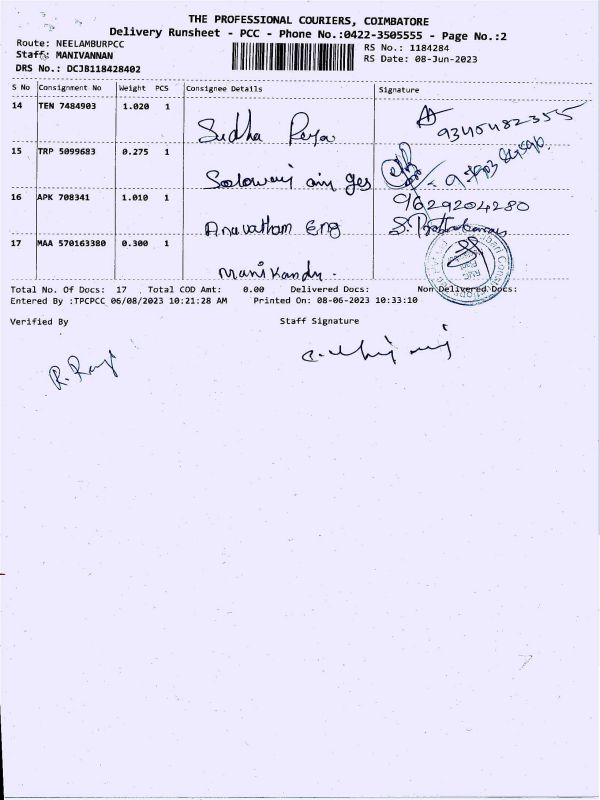 THE PROFESSIONAL COURIERS, COIMBATORE
Delivery Runsheet - PCC - Phone No.:0422-3505555 - Page No.:2
Route: NEELAMBURPCC
Staff: MANIVANNAN
DRS No.: DCJB118428402
RS No.: 1184284
RS Date: 08-Jun-2023
S No Consignment No Weight PCS Consignee Details Signature
14 TEN 7484903 1.020 1
Sudha Priya
15 TRP 5099683 0.275 1
air ges
16 APK 708341 1.010 1
9629204280
Aravatham Eng
17 MAA 570163380 0.300 1
Manikandn.
Total No. Of Docs: 17 Total COD Amt: 0.00 Delivered Docs: Non Delivered Docs:
Entered By :TPCPCC 06/08/2023 10:21:28 AM Printed On: 08-06-2023 10:33:10
Verified By Staff Signature